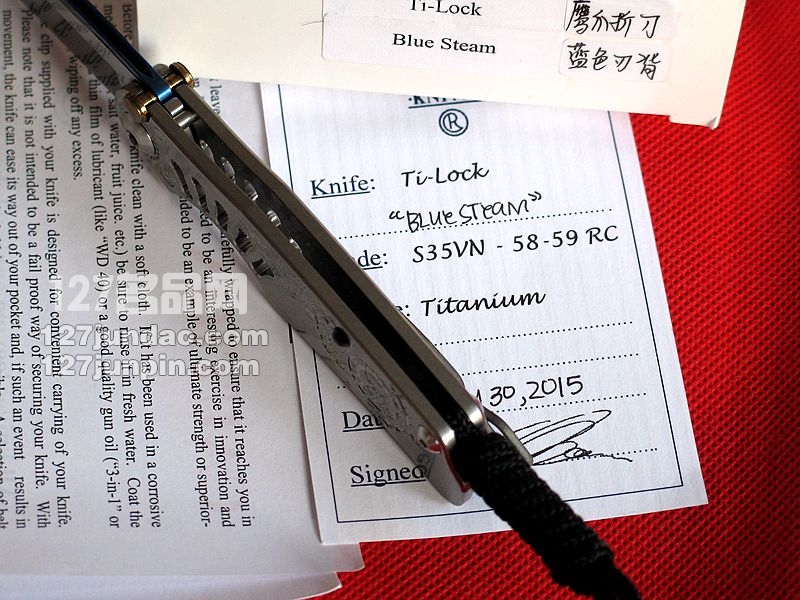 Ti-Lock
Blue Steam
鹰爪折刀
蓝色刃背
®
Knife: Ti-Lock
"BLUE STEAM"
S35VN - 58-59 RC
Titanium
30, 2015
Signed
127军品网
127jundac.com
127junpin.com
wiping off any excess.
than film of lubricant (like "WD-40) or a good quality gun oil ("3-in-1" or
salt water, fruit juice, etc.) be sure to rinse it in fresh water. Coat the
knife clean with a soft cloth. If it has been used in a corrosive
clip supplied with your knife is designed for convenient carrying of your knife.
Please note that it is not intended to be a fail proof way of securing your knife. With
movement, the knife can ease its way out of your pocket and, if such an event results in
wrapped to ensure that it reaches you in
to be an interesting exercise in innovation and
to be an example of ultimate strength or superior-